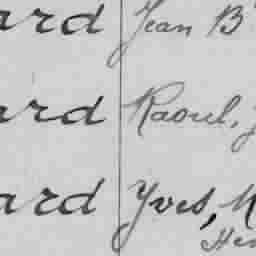 ard Jean B
ard Raoul, J
ard Yves, M
Hen